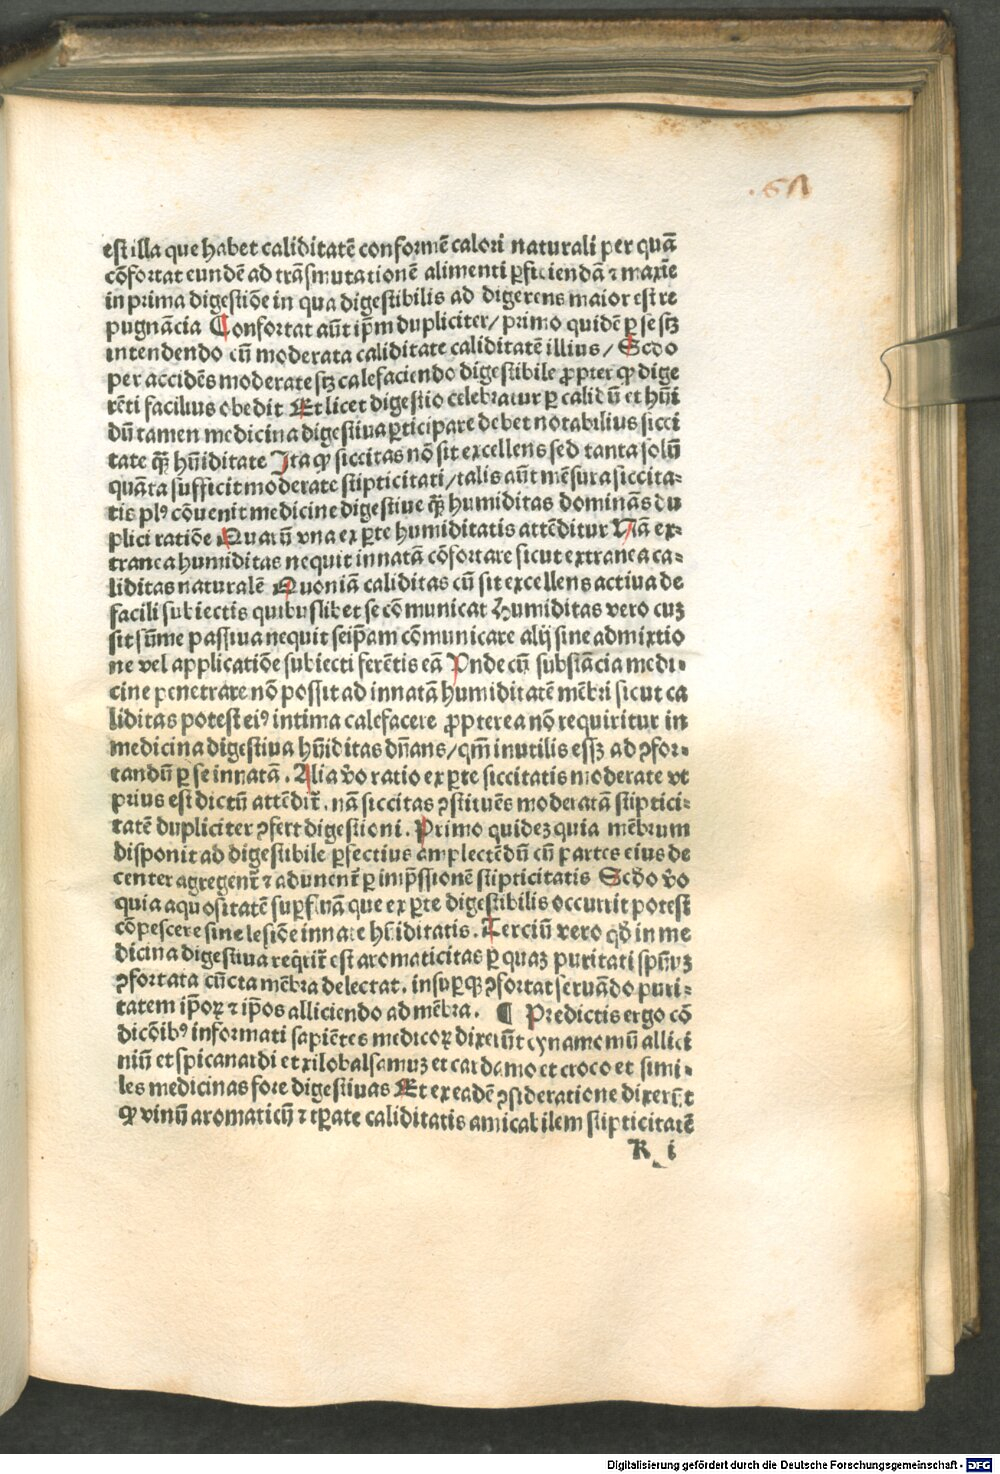 .61
est illa que habet caliditatē conformē calori naturali per quā
cōfortat eundē ad trāsmutationē alimenti ꝑficiendā ⁊ maxīe
in prima digestiōe in qua digestibilis ad digerens maior est re
pugnācia Confortat aūt ip̄m dupliciter/ primo quidē ꝑ se sꝫ
intendendo cū moderata caliditate caliditatē illius/ Scdo
per accidēs moderate sꝫ calefaciendo digestibile ꝓpter qꝫ dige
rēti facilius obedit Et licet digestio celebratur ꝑ calidū et hūi
dū tamen medicina digestiua ꝑticipare debet notabilius sicci
tate q̄ꝫ hūiditate Ita qꝫ siccitas nō sit excellens sed tanta solū
quāta sufficit moderate stipticitati/ talis aūt mēsura siccita⸗
tis plꝰ cōuenit medicine digestiue q̄ꝫ humiditas dominās du
plici ratiōe Quarū vna ex ꝑte humiditatis attēditur Nā ex⸗
tranea humiditas nequit innatā cōfortare sicut extranea ca⸗
liditas naturalē Quoniā caliditas cū sit excellens actiua de
facili subiectis quibuslibet se cōmunicat Humiditas vero cuꝫ
sit sūme passiua nequit seip̄am cōmunicare alij sine admixtio
ne vel applicatiōe subiecti ferētis eā Vnde cū substācia medi⸗
cine penetrare nō possit ad innatā humiditatē mēbri sicut ca
liditas potest eiꝰ intima calefacere ꝓpterea nō requiritur in
medicina digestiua hūiditas dn̄ans/ qm̄ inutilis essꝫ ad ꝯfor⸗
tandū ꝑ se innatā. Alia v̄o ratio ex ꝑte siccitatis moderate vt
prius est dictū attēdit̄. nā siccitas ꝯstituēs moderatā stiptici⸗
tatē dupliciter ꝯfert digestioni. Primo quideꝫ quia mēbrum
disponit ad digestibile ꝑfectius amplectēdū cū partes eius de
center agregent̄ ⁊ adunent̄ ꝑ imp̄ssionē stipticitatis Scdo v̄o
quia aquositatē suꝑfluā que ex ꝑte digestibilis occurrit potest
cōpescere sine lesiōe innate hūiditatis. Terciū vero qd̄ in me
dicina digestiua req̄rit̄ est aromaticitas ꝑ quaꝫ puritati sp̄uūꝫ
ꝯfortata cūcta mēbra delectat. insuꝑqꝫ ꝯfortat seruādo puri⸗
tatem ip̄oꝝ ⁊ ip̄os alliciendo ad mēbra. ¶ Predictis ergo cō
dicōibꝰ informati sapiētes medicoꝝ dixerūt cynamomū allici
niū et spicanardi et xilobalsamuꝫ et cardamo et croco et simi⸗
les medicinas fore digestiuas Et ex eadē ꝯsideratione dixerūt
qꝫ vinū aromaticū ⁊ tꝑate caliditatis amicabilem stipticitatē
K i
Digitalisierung gefördert durch die Deutsche Forschungsgemeinschaft - DFG